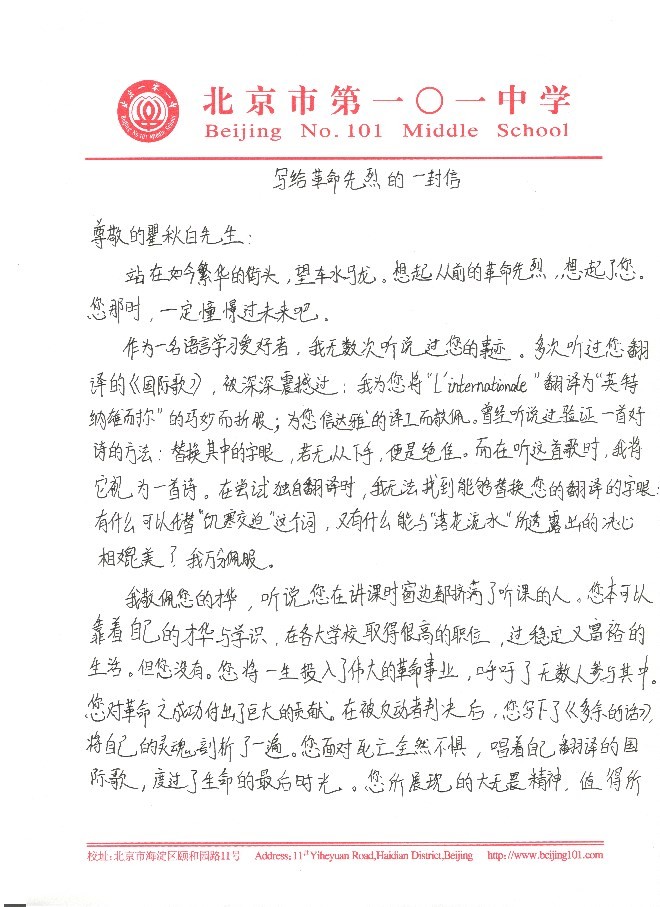 北京一零一中
BEIJING NO.101 MIDDLE SCHOOL
北京市第一〇一中学
Beijing No.101 Middle School
写给革命先烈的一封信
尊敬的瞿秋白先生：
站在如今繁华的街头，望车水马龙。想起从前的革命先烈，想起了您。
您那时，一定憧憬过未来吧。
作为一名语言学习爱好者，我无数次听说过您的事迹。多次听过您翻
译的《国际歌》，被深深震撼过；我为您将“L'internationale”翻译为“英特
纳维耐尔”的巧妙而折服；为您‘信达雅’的译工而敬佩。曾经听说过验证一首好
诗的方法：替换其中的字眼，若无从下手，便是绝佳。而在听这首歌时，我将
它视为一首诗。在尝试独自翻译时，我无法找到能够替换您的翻译的字眼：
有什么可以代替“饥寒交迫”这个词，又有什么能与“落花流水”所透露出的决心
相媲美？我万分佩服。
我敬佩您的才华，听说您在讲课时窗边都挤满了听课的人。您本可以
靠着自己的才华与学识，在各大学校取得很高的职位，过稳定又富裕的
生活。但您没有。您将一生投入了伟大的革命事业，呼吁了无数人参与其中。
您对革命之成功付出了巨大的贡献。在被反动者判决后，您写下了《多余的话》，
将自己的灵魂剖析了一遍。您面对死亡全然不惧，唱着自己翻译的国
际歌，度过了生命的最后时光。您所展现的大无畏精神，值得所
校址：北京市海淀区颐和园路11号 Address: 11# Yiheyuan Road,Haidian District,Beijing http://www.beijing101.com